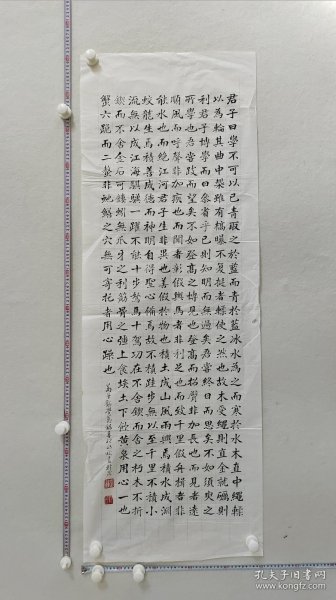 君子曰學不可以已青取之於藍而青於藍冰水為之而寒於水木直中繩輮
以為輪其曲中規雖有槁曝不復挺者輮使之然也故木受繩則直金就礪則
利君子博學而日參省乎己則知明而無過矣吾嘗終日而思矣不如須臾之
所學也吾嘗跂而望矣不如登高之博見也登高而招臂非加長也而見者遠
順風而呼聲非加疾也而聞者彰假輿馬者非利足也而致千里假舟楫者非
能水也而絕江河君子生非異也善假於物也積土成山風雨興焉積水成淵
蛟龍生焉積善成德而神明自得聖心備焉故不積跬步無以至千里不積小
流無以成江海騏驥一躍不能十步駑馬十駕功在不舍鍥而舍之朽木不折
鍥而不舍金石可鏤蚓無爪牙之利筋骨之強上食埃土下飲黃泉用心一也
蟹六跪而二螯非虵鱓之穴無可寄託者用心躁也
孔夫子旧书网